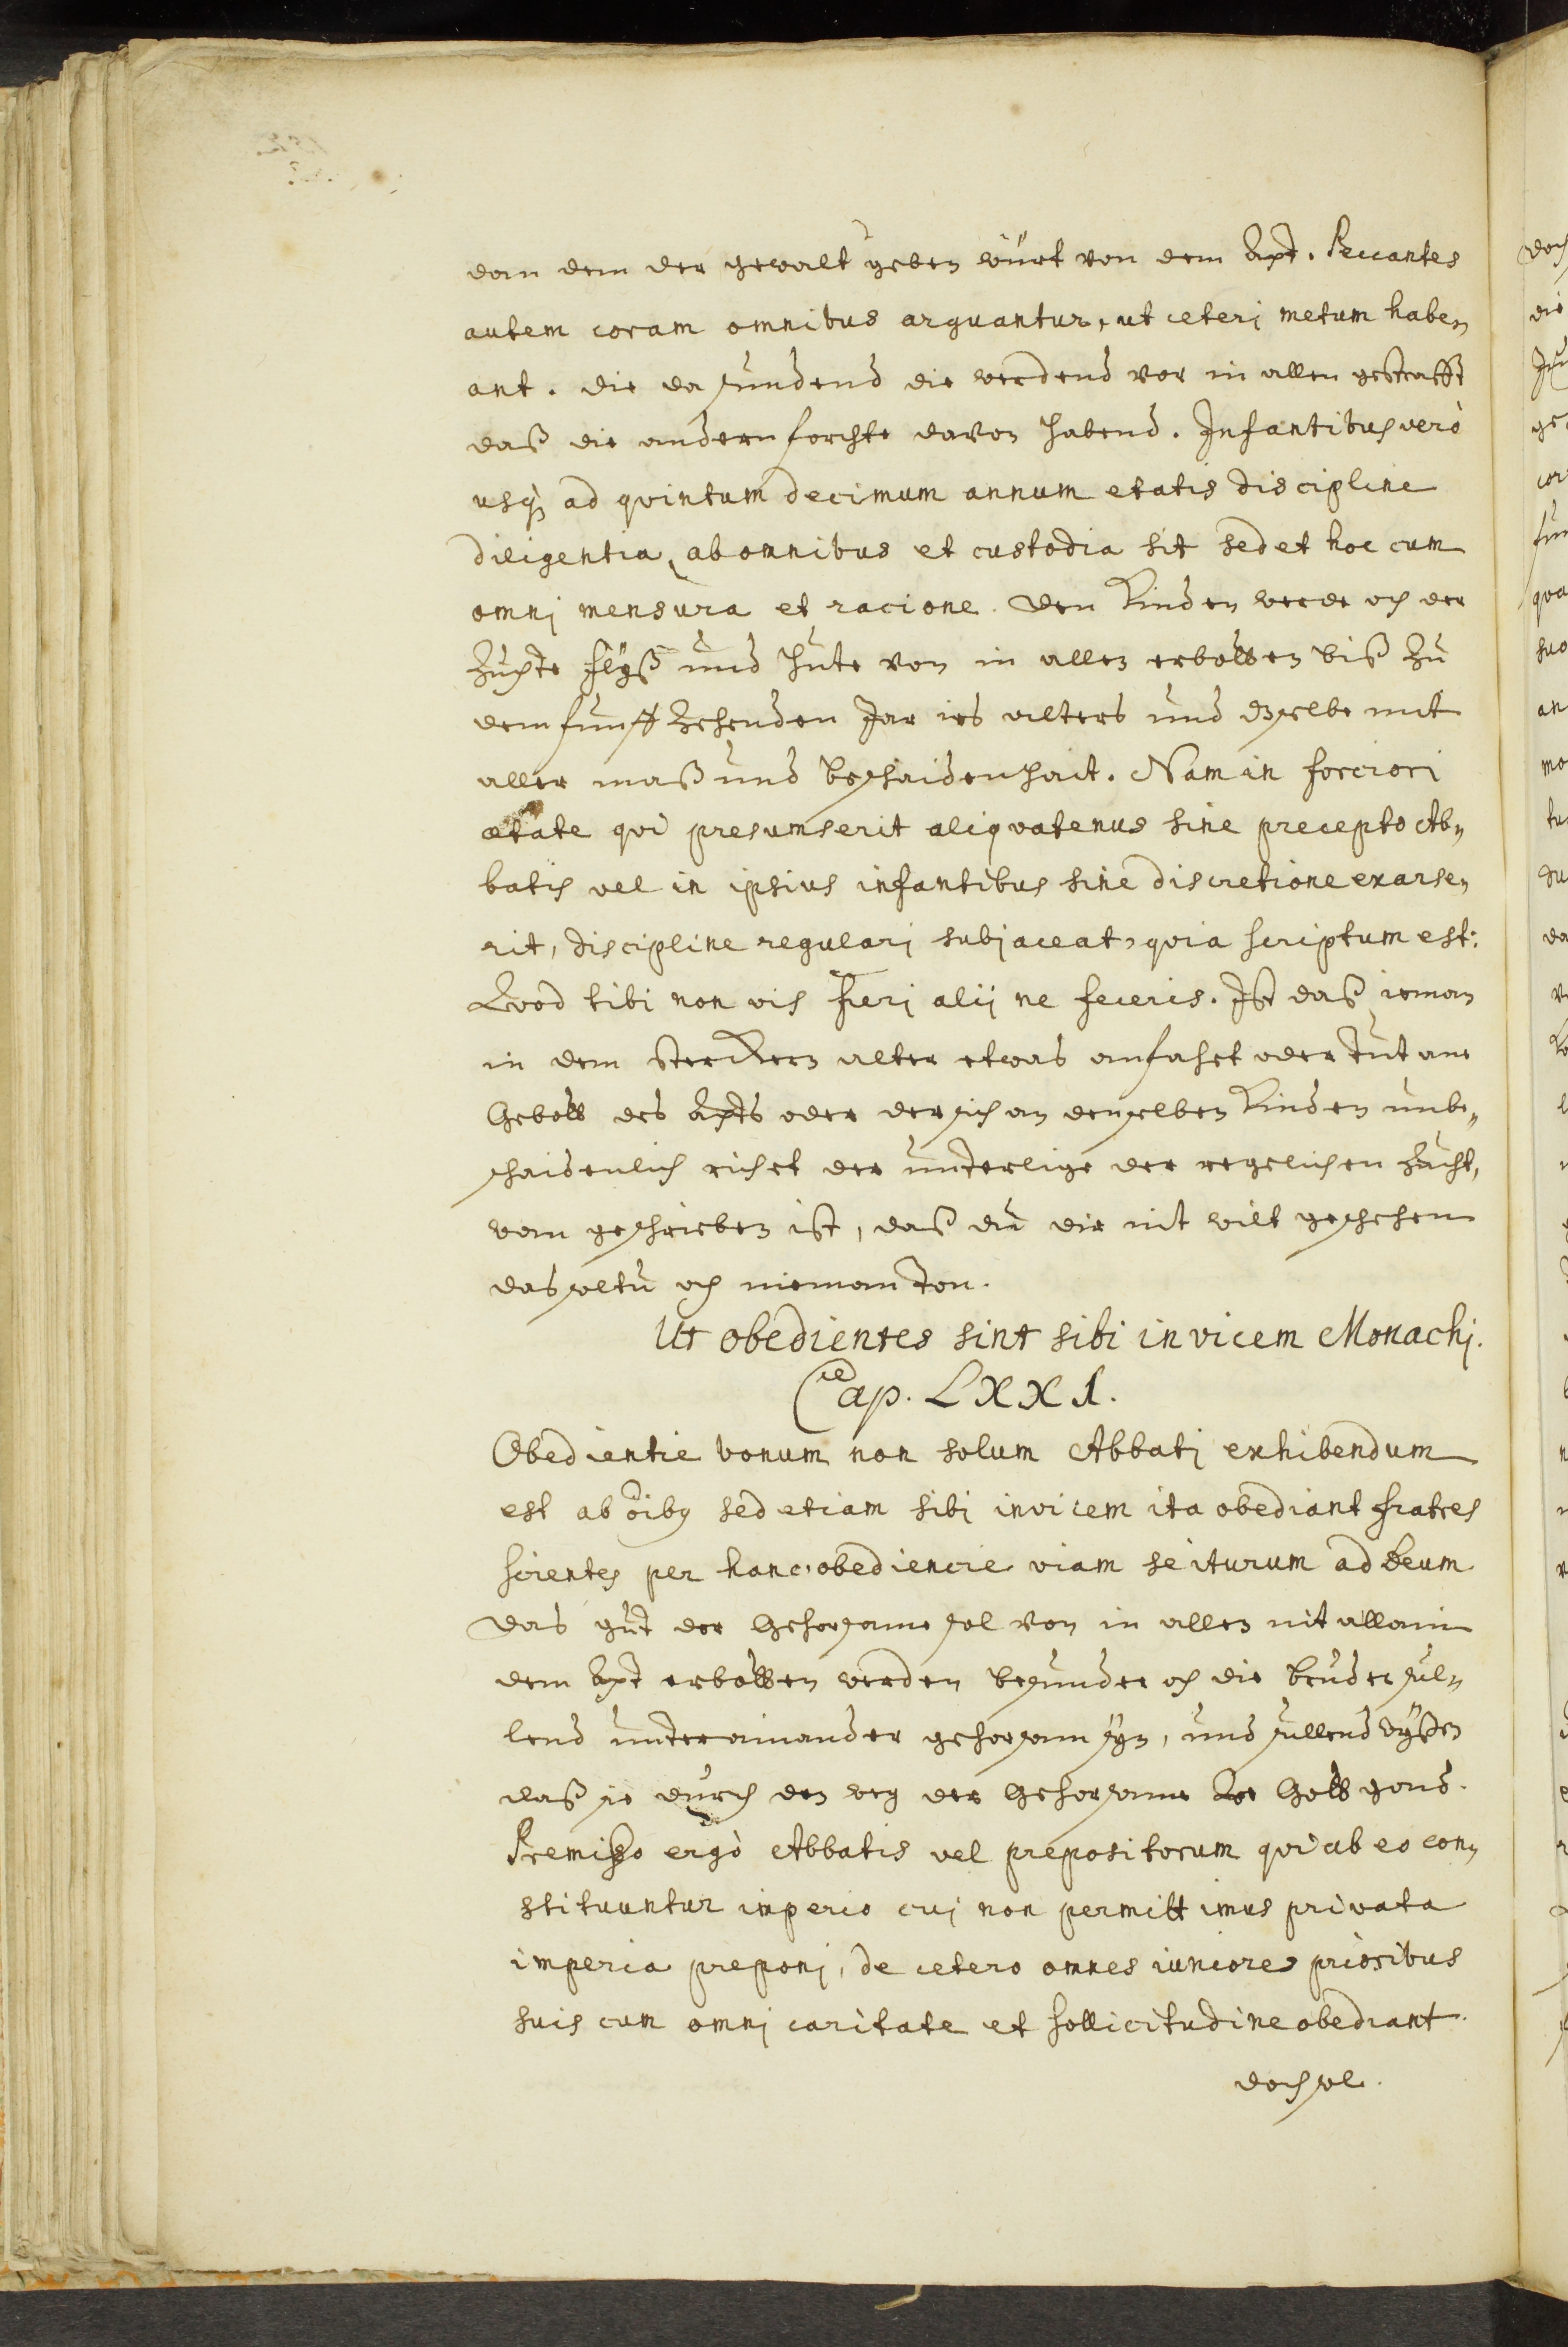 dan dem der gewalt geben würt von dem Apt. Peccantes
autem coram omnibus arguantur, ut ceterj metum habe„
ant. die da sündend die werdend vor in allen gestrafft
daß die andern forchte davon habend. Infantibus verò
usq; ad quintum decimum annum etatis discipline
diligentia, ab omnibus et custodia sit sed et hoc cum
omnj mensura et racione. den Kinden werde och der
Zuchte flÿß und hute von in allen erbotten biß zu
dem funff zehenden Jar irs alters und dzselbe mit
aller maß und beschaidenhait. Nam in forciori
ætate qui presumserit aliquatenus sine precepto Ab„
batis vel in ipsius infantibus sine discretione exarse„
rit, discipline regularj subjaceat, quia scriptum est:
Quod tibi non vis fierj alij ne feceris. Ist daß ieman
in dem sterckern alter etwas anfahet oder tut ane
Gebott des Apts oder der sich an denselben Kinden unbe„
schaidenlich richet der underlige der regelichen zucht,
wan geschrieben ist, daß du dir nit wilt geschehen
das soltu och nieman ton.
Ut obedientes sint sibi invicem Monachj.
Cap. LXXI.
Obedientie bonum non solum Abbatj exhibendum
est ab oibꝫ sed etiam sibj invicem ita obediant fratres
scientes per hanc obediencie viam se iturum ad Deum
das gut der Gehorsame sol von in allen nit allain
dem Apt erbotten werden besunder och die bruder sul„
lend underainander gehorsam sÿn, und sullend wÿßen
daß sie durch den weg der Gehorsame zu Gott gond.
Premißo ergò Abbatis vel prepositorum qui ab eo con„
stituuntur imperio cuj non permittimus privata
imperia preponj, de cetero omnes iuniores prioribus
suis cum omnj caritate et sollicitudine obediant.
doch sol.